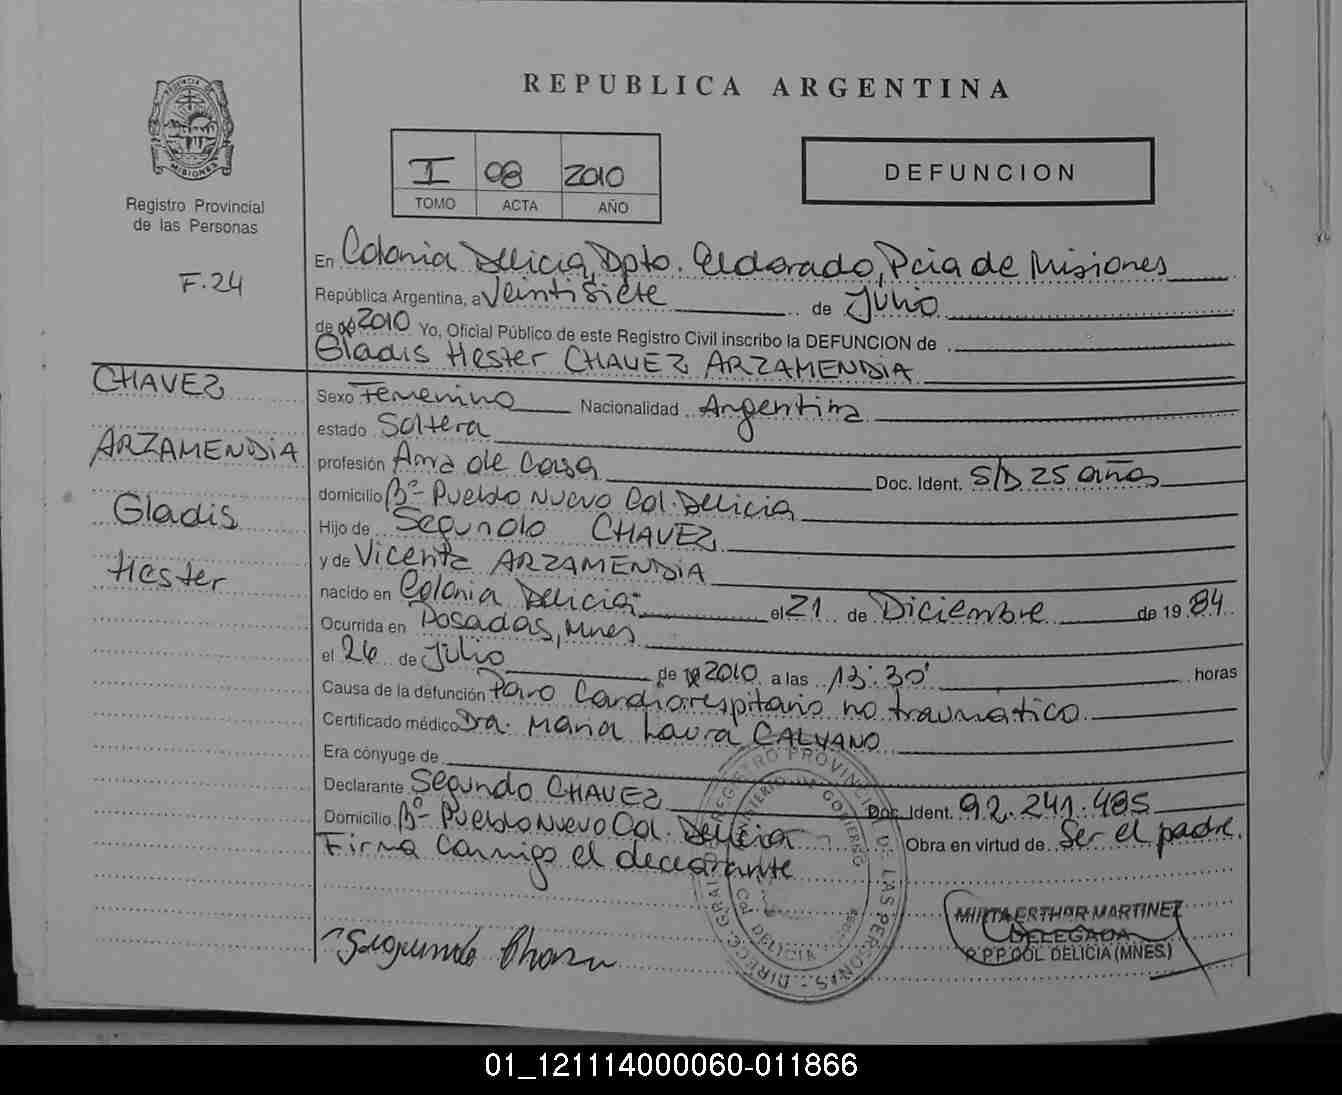 REPUBLICA ARGENTINA
PROVINCIA DE MISIONES
Registro Provincial
de las Personas
F.24
I 08 2010
TOMO ACTA AÑO
DEFUNCION
En Colonia Delicia, Dpto. Eldorado, Pcia de Misiones
República Argentina, a Veintisiete de Julio
de 2010 Yo, Oficial Público de este Registro Civil inscribo la DEFUNCION de
Gladis Hester CHAVEZ ARZAMENDIA
CHAVEZ
ARZAMENDIA
Gladis
Hester
Sexo Femenino Nacionalidad Argentina
estado Soltera
profesión Ama de Casa Doc. Ident. S/D 25 años
domicilio Bº Pueblo Nuevo Col. Delicia
Hijo de Segundo CHAVEZ
y de Vicenta ARZAMENDIA
nacido en Colonia Delicia el 21 de Diciembre de 1984
Ocurrida en Posadas, Mnes
el 26 de Julio de 2010 a las 13:30' horas
Causa de la defunción Paro Cardiorespitario no traumatico
Certificado médico Dra. Maria Laura CALVANO
Era cónyuge de
Declarante Segundo CHAVEZ Doc. Ident. 92.241.485
Domicilio Bº Pueblo Nuevo Col. Delicia Obra en virtud de Ser el padre.
Firma Conmigo el declarante
DIREC. GRAL. REGISTRO PROVINCIAL DE LAS PERSONAS
MINISTERIO DE GOBIERNO
COL. DELICIA
Segundo Chavez
MIRTA ESTHER MARTINEZ
DELEGADA
R.P.P. COL. DELICIA (MNES.)
01_121114000060-011866